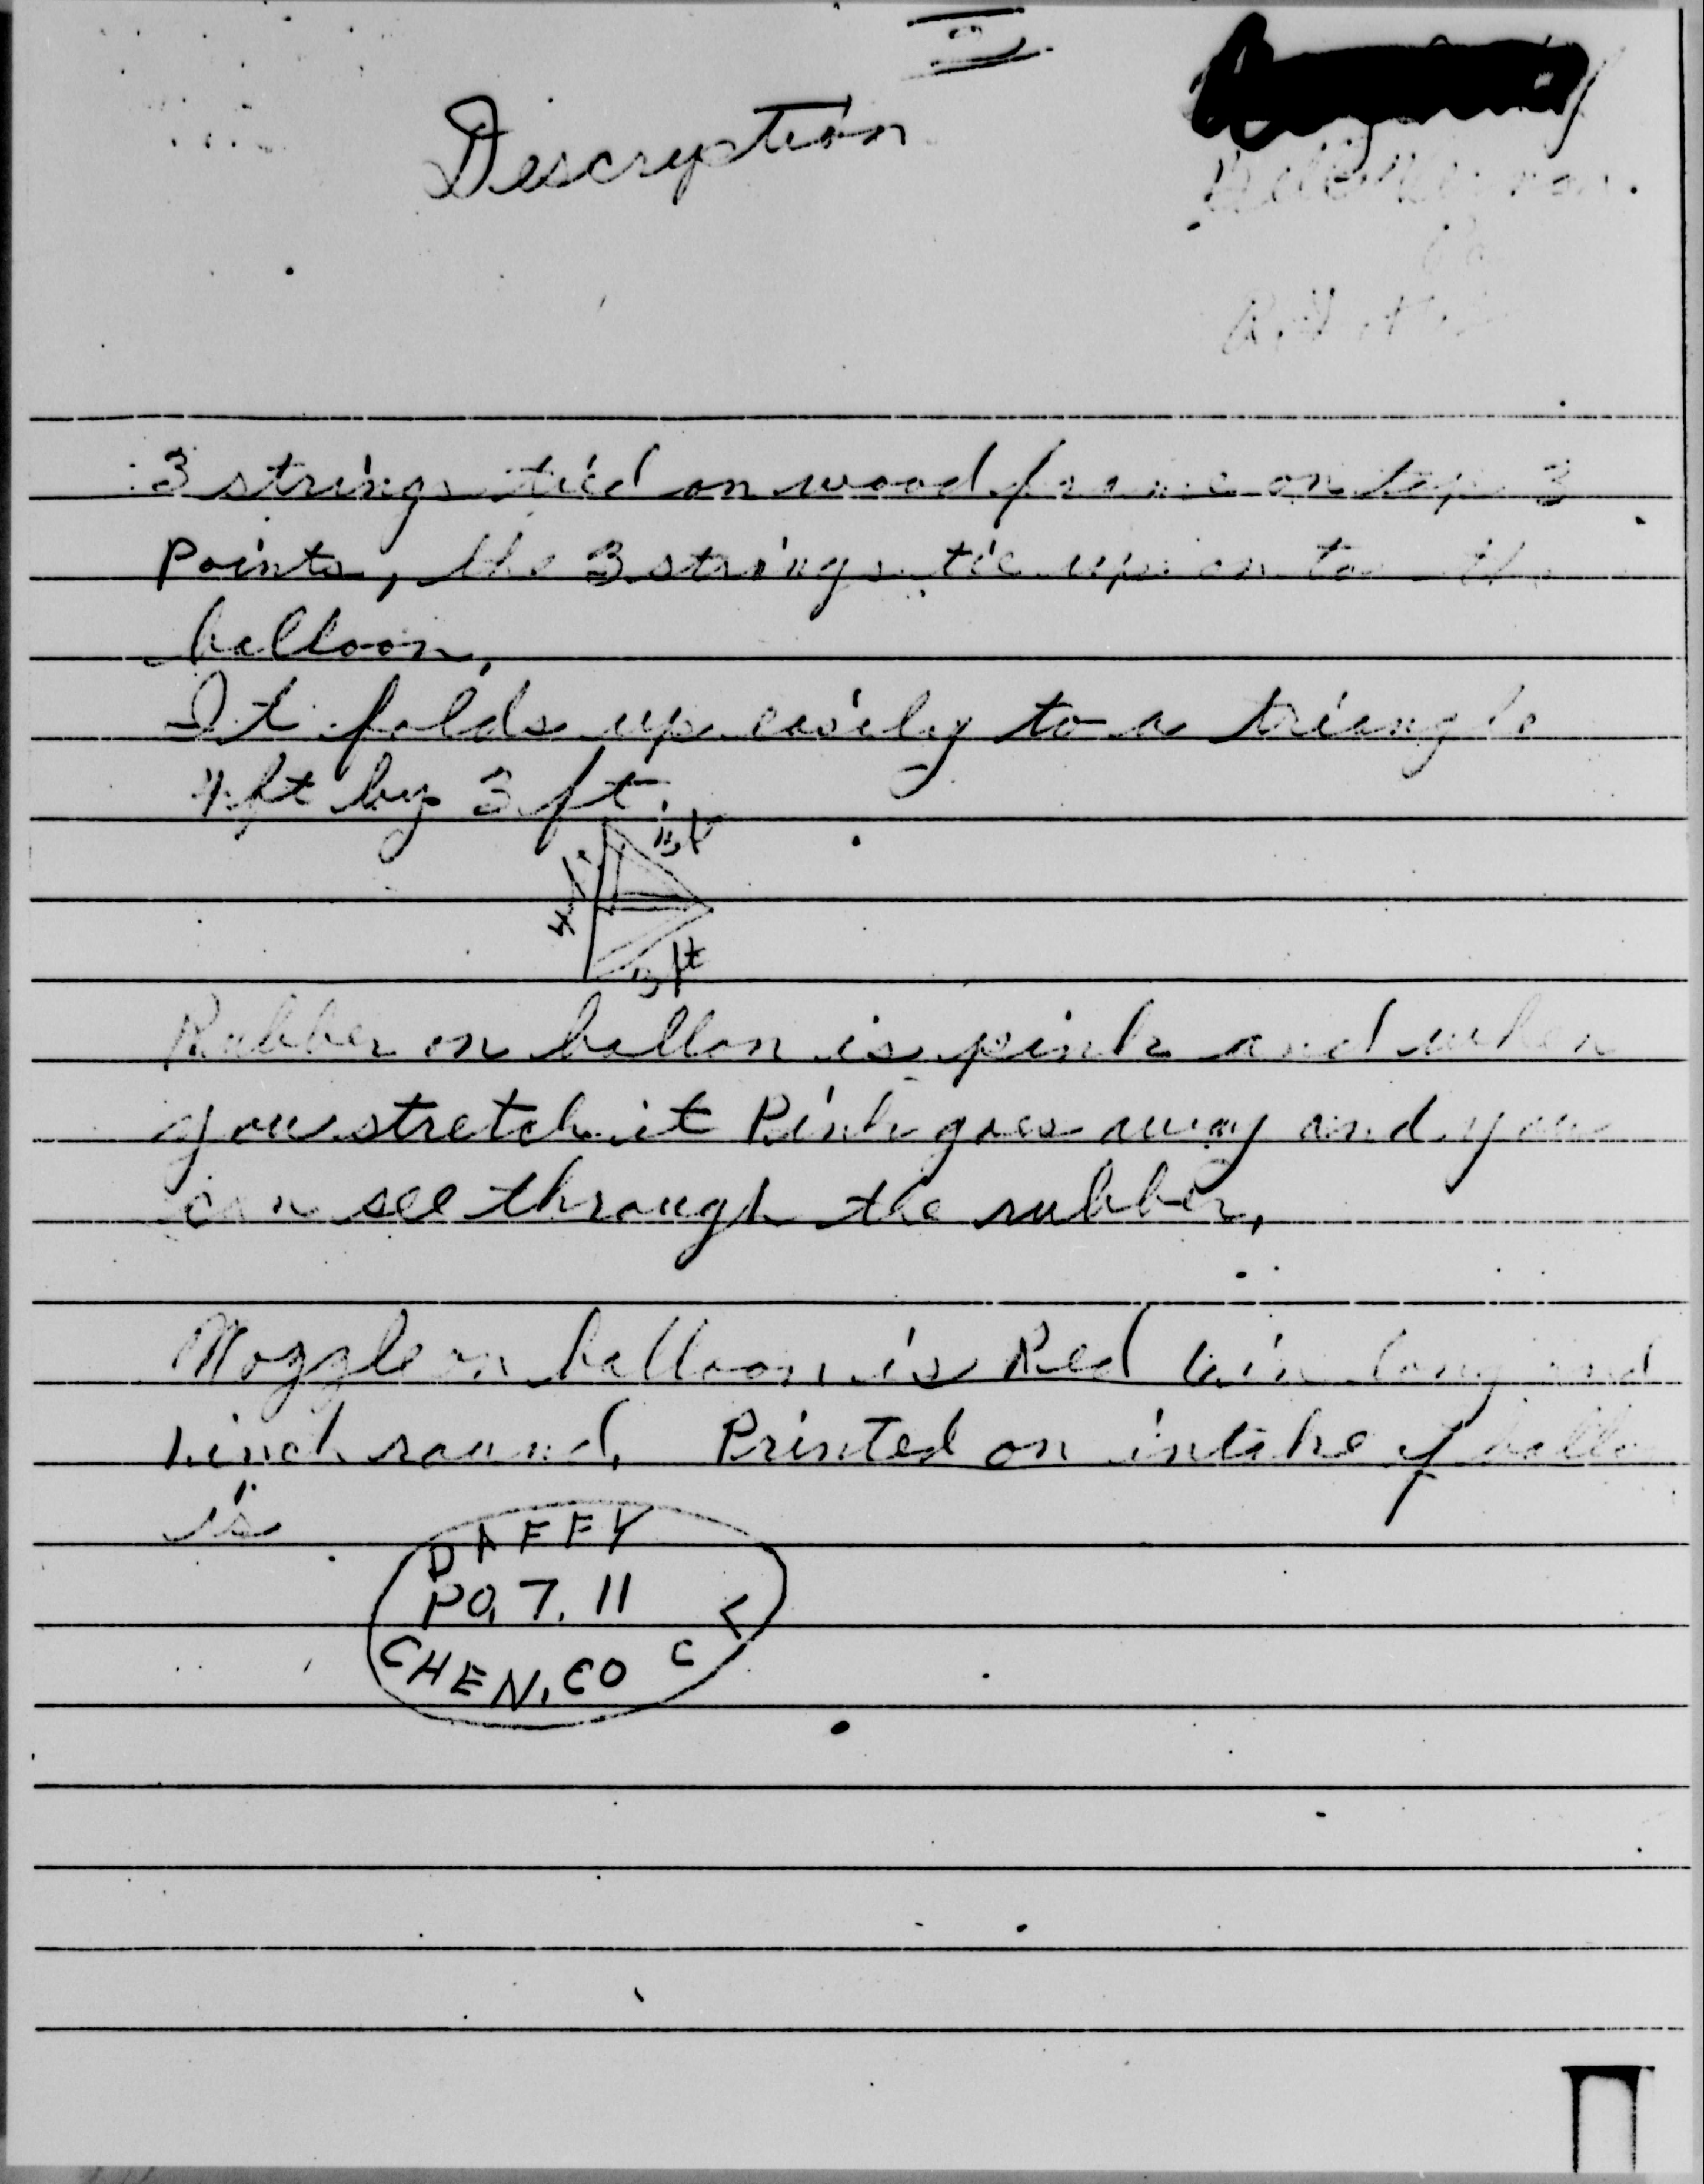 Descryption
3 strings tied on wood frame on top 3
Points, the 3 strings tie up on to the
balloon,
It folds up easily to a triangle
4 ft by 3 ft.
3 ft
4 ft
3 ft
Rubber on ballon is pink and when
you stretch it Pink goes away and you
can see through the rubber,
Nozzle on balloon is Red in long and
1 inch round, Printed on intake of
is
DAFFY
PO, 7, 11
CHEN, CO C